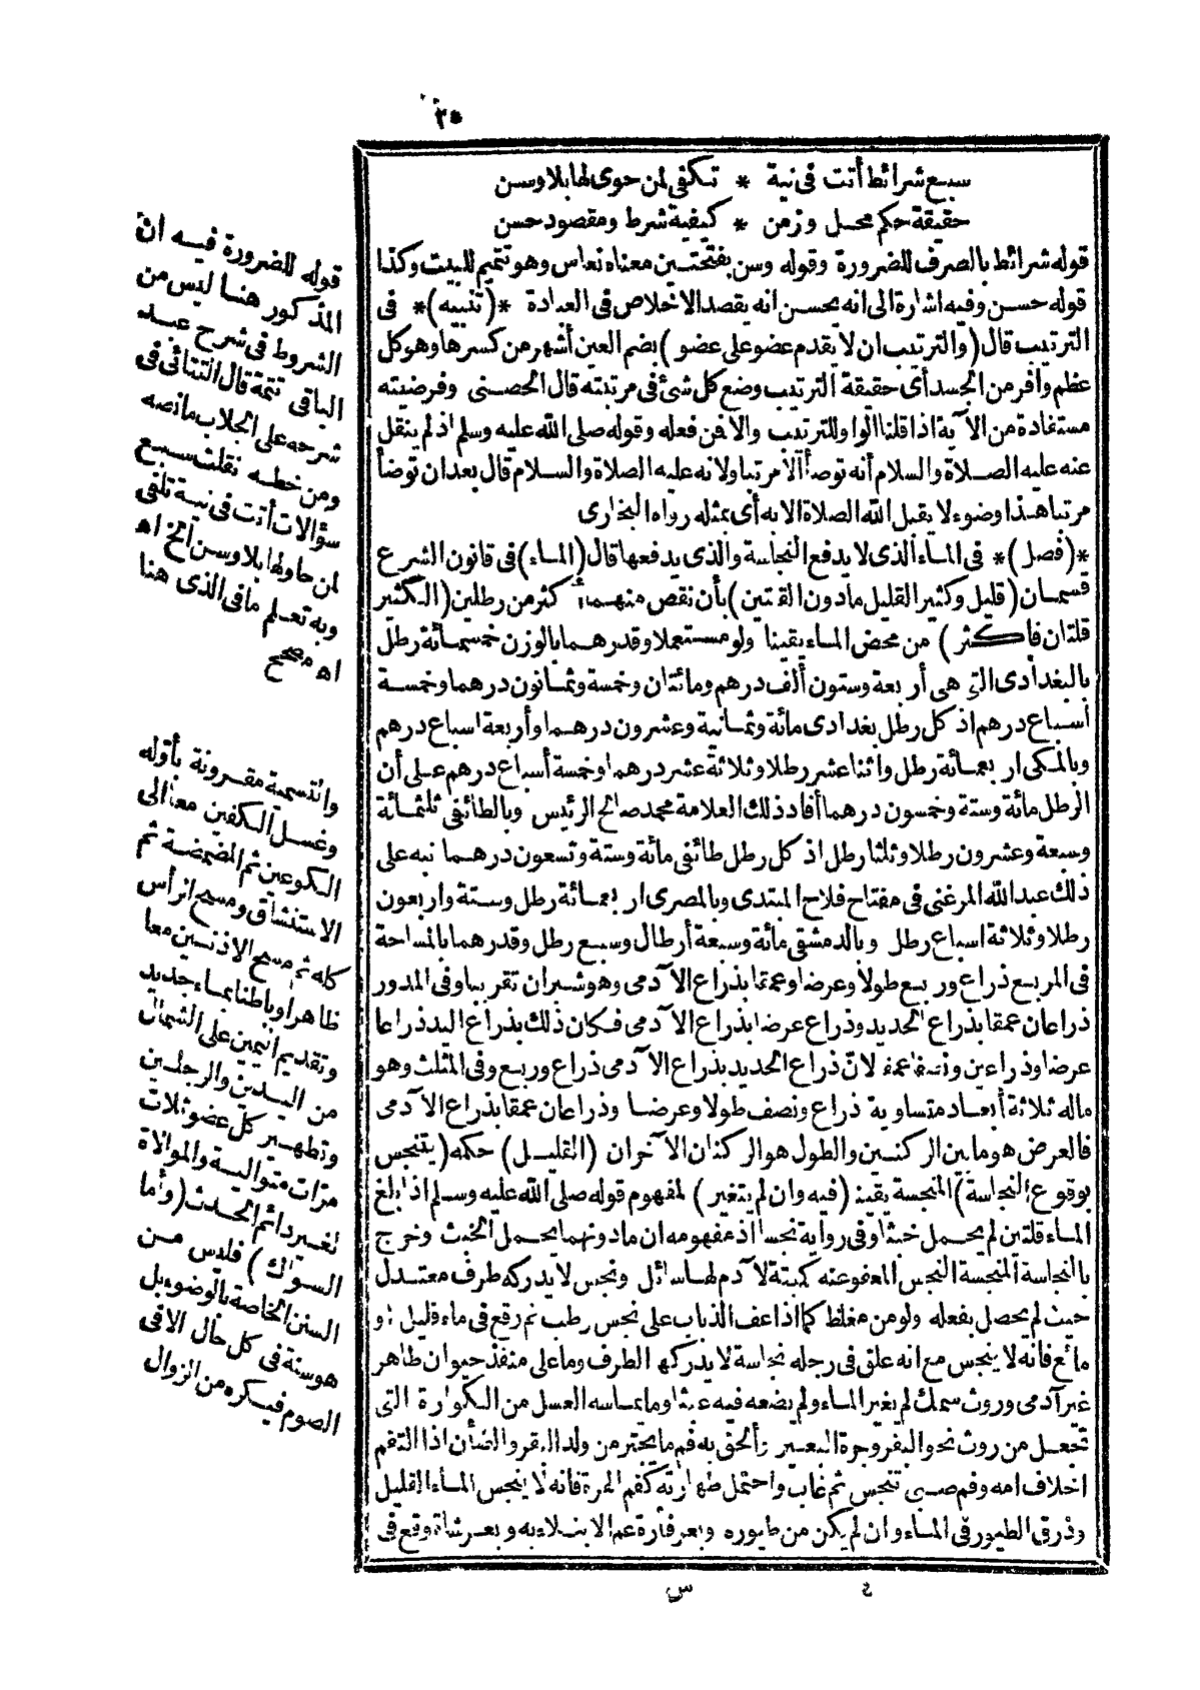 سبع شرائط أتت في نية * تكفي لمن حوى لها بلا وسن
حقيقة حكم محل وزمن * كيفية شرط ومقصود حسن
قوله شرائط بالصرف للضرورة وقوله وسن بفتحتين معناه نعاس وهو تتميم للبيت وكذا
قوله حسن وفيه اشارة الى انه يحسن انه يقصد الاخلاص في العبادة *(تنبيه)* في
الترتيب قال (والترتيب ان لا يقدم عضو على عضو) بضم العين أشهر من كسرها وهو كل
عظم وافر من الجسد أي حقيقة الترتيب وضع كل شئ في مرتبته قال الحصني وفرضيته
مستفادة من الآية اذا قلنا الواو للترتيب والا فن فعله وقوله صلى الله عليه وسلم اذ لم ينقل
عنه عليه الصلاة والسلام أنه توضأ الا مرتبا ولانه عليه الصلاة والسلام قال بعد ان توضأ
مرتبا هذا وضوء لا يقبل الله الصلاة الا به أى بمثله رواه البخارى
*(فصل)* في الماء الذى لا يدفع النجاسة والذى يدفعها قال (الماء) فى قانون الشرع
قسمان (قليل وكثير القليل مادون القلتين) بأن نقص منهما أكثر من رطلين (الكثير
قلتان فاكثر) من محض الماء يقينا ولو مستعملا وقدرهما بالوزن خمسمائة رطل
بالبغدادى التى هى أربعة وستون ألف درهم ومائتان وخمسة وثمانون درهما وخمسة
أسباع درهم اذ كل رطل بغدادى مائة وثمانية وعشرون درهما وأربعة اسباع درهم
وبالمكى اربعمائة رطل واثنا عشر رطلا وثلاثة عشر درهما وخمسة أسباع درهم على أن
الرطل مائة وستة وخمسون درهما أفاد ذلك العلامة محمد صالح الرئيس وبالطائفى ثلثمائة
وسبعة وعشرون رطلا وثلثا رطل اذ كل رطل طائفى مائة وستة وتسعون درهما نبه على
ذلك عبد الله المرغنى فى مفتاح فلاح المبتدى وبالمصرى اربعمائة رطل وستة واربعون
رطلا وثلاثة اسباع رطل وبالدمشقى مائة وسبعة أرطال وسبع رطل وقدرهما بالمساحة
فى المربع ذراع وربع طولا وعرضا وعمقا بذراع الآدمى وهو شبران تقريبا وفى المدور
ذراعان عمقا بذراع الحديد وذراع عرضا بذراع الآدمى فكان ذلك بذراع اليد ذراعا
عرضا وذراعين ونصفا عمقا لان ذراع الحديد بذراع الآدمى ذراع وربع وفى المثلث وهو
ماله ثلاثة أبعاد متساوية ذراع ونصف طولا وعرضا وذراعان عمقا بذراع الآدمى
فالعرض هو ما بين الركنين والطول هو الركنان الآخران (القليل) حكمه (يتنجس
بوقوع النجاسة) المنجسة يقينا (فيه وان لم يتغير) لمفهوم قوله صلى الله عليه وسلم اذا بلغ
الماء قلتين لم يحمل خبثا وفى رواية نجسا اذ مفهومه ان مادونهما يحمل الخبث وخرج
بالنجاسة المنجسة النجس المعفو عنه كميتة لا دم لها سائل ونجس لا يدركه طرف معتدل
حيث لم يحصل بفعله ولو من مغلظ كما اذا عف الذباب على نجس رطب ثم وقع فى ماء قليل او
مائع فانه لا ينجس مع انه علق فى رجله نجاسة لا يدركها الطرف وما على منفذ حيوان طاهر
غير آدمى وروث سمك لم يغير الماء ولم يضعه فيه عبثا وما يماسه العسل من الكوارة التى
تجعل من روث نحو البقر وجرة البعير وألحق به فم ما يجتر من ولد البقر والضأن اذا التقم
اخلاف امه وفم صبى تنجس ثم غاب واحتمل طهارته كفم الهرة فانه لا ينجس الماء القليل
وذرق الطيور فى الماء وان لم يكن من طيوره وبعر فأرة عم الابتلاء به وبعر شاة وقع فى
٤ س
قوله للضرورة فيه ان
المذكور هنا ليس من
الشروط فى شرح عبد
الباقى تتمة قال التتائى فى
شرحه على الجلاب ما نصه
ومن خطه نقلت سبع
سؤالات أتت فى نية تلقى
لمن حاولها بلا وسن الخ اه
وبه تعلم ما فى الذى هنا
اه مصحح
والتسمية مقرونة بأوله
وغسل الكفين معا الى
الكوعين ثم المضمضة ثم
الاستنشاق ومسح الرأس
كله ثم مسح الاذنين معا
ظاهرا وباطنا بماء جديد
وتقديم اليمين على الشمال
من اليدين والرجلين
وتطهير كل عضو ثلاث
مرات متوالية والموالاة
لغير دائم الحدث (وأما
السواك) فليس من
السنن الخاصة بالوضوء بل
هو سنة فى كل حال الا فى
الصوم فيكره من الزوال